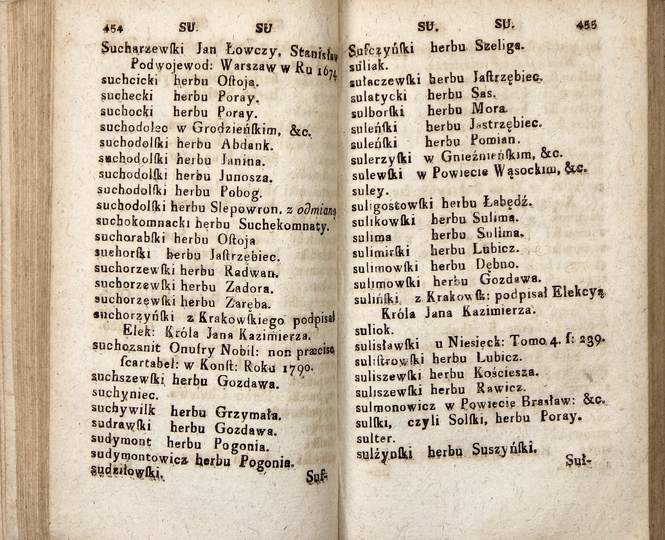 454 SU. SU
Sucharzewſki Jan Łowczy, Staniſław
Podwojewod: Warszaw w Ru 1674
suchcicki herbu Oſtoja.
suchecki herbu Poray.
suchocki herbu Poray.
suchodolec w Grodzieńſkim, &c.
suchodolſki herbu Abdank.
suchodolſki herbu Janina.
suchodolſki herbu Junosza.
suchodolſki herbu Pobog.
suchodolſki herbu Slepowron. z odmianą
suchokomnacki herbu Suchekomnaty.
suchorabſki herbu Oſtoja
suchorſki herbu Jaſtrzębiec.
suchorzewſki herbu Radwan.
suchorzewſki herbu Zadora.
suchorzęwſki herbu Zaręba.
suchorzyńſki z Krakowſkiego podpisał
Elek: Króla Jana Kazimierza.
suchozanit Onufry Nobil: non præcise
ſcartabel: w Konſt: Roku 1790.
suchszewſki herbu Gozdawa.
suchyniec.
suchywilk herbu Grzymała.
sudrawſki herbu Gozdawa.
sudymont herbu Pogonia.
sudymontowicz herbu Pogonia.
sudziłowſki.
Suf-
SU. SU. 455
Sufczyńſki herbu Szeliga.
suliak.
sułaczewſki herbu Jaſtrzębiec.
sulatycki herbu Sas.
sulborſki herbu Mora.
suleńſki herbu Jastrzębiec.
suleńſki herbu Pomian.
sulerzyſki w Gnieźnieńſkim, &c.
sulewſki w Powiecie Wąsockim, &c.
suley.
suligoſtowſki herbu Łabędź.
sulikowſki herbu Sulima.
sulima herbu Sulima.
sulimirſki herbu Lubicz.
sulimowſki herbu Dębno.
sulimowſki herbu Gozdawa.
sulińſki z Krakowſk: podpisał Elekcyą
Króla Jana Kazimierza.
suliok.
sulisławſki u Niesięck: Tomo 4. f: 239.
suliſtrowſki herbu Lubicz.
suliszewſki herbu Kościesza.
suliszewſki herbu Rawicz.
sulmonowicz w Powiecie Brasław: &c.
sulſki, czyli Solſki, herbu Poray.
sulter.
sulżyńſki herbu Suszyńſki.
Suł-